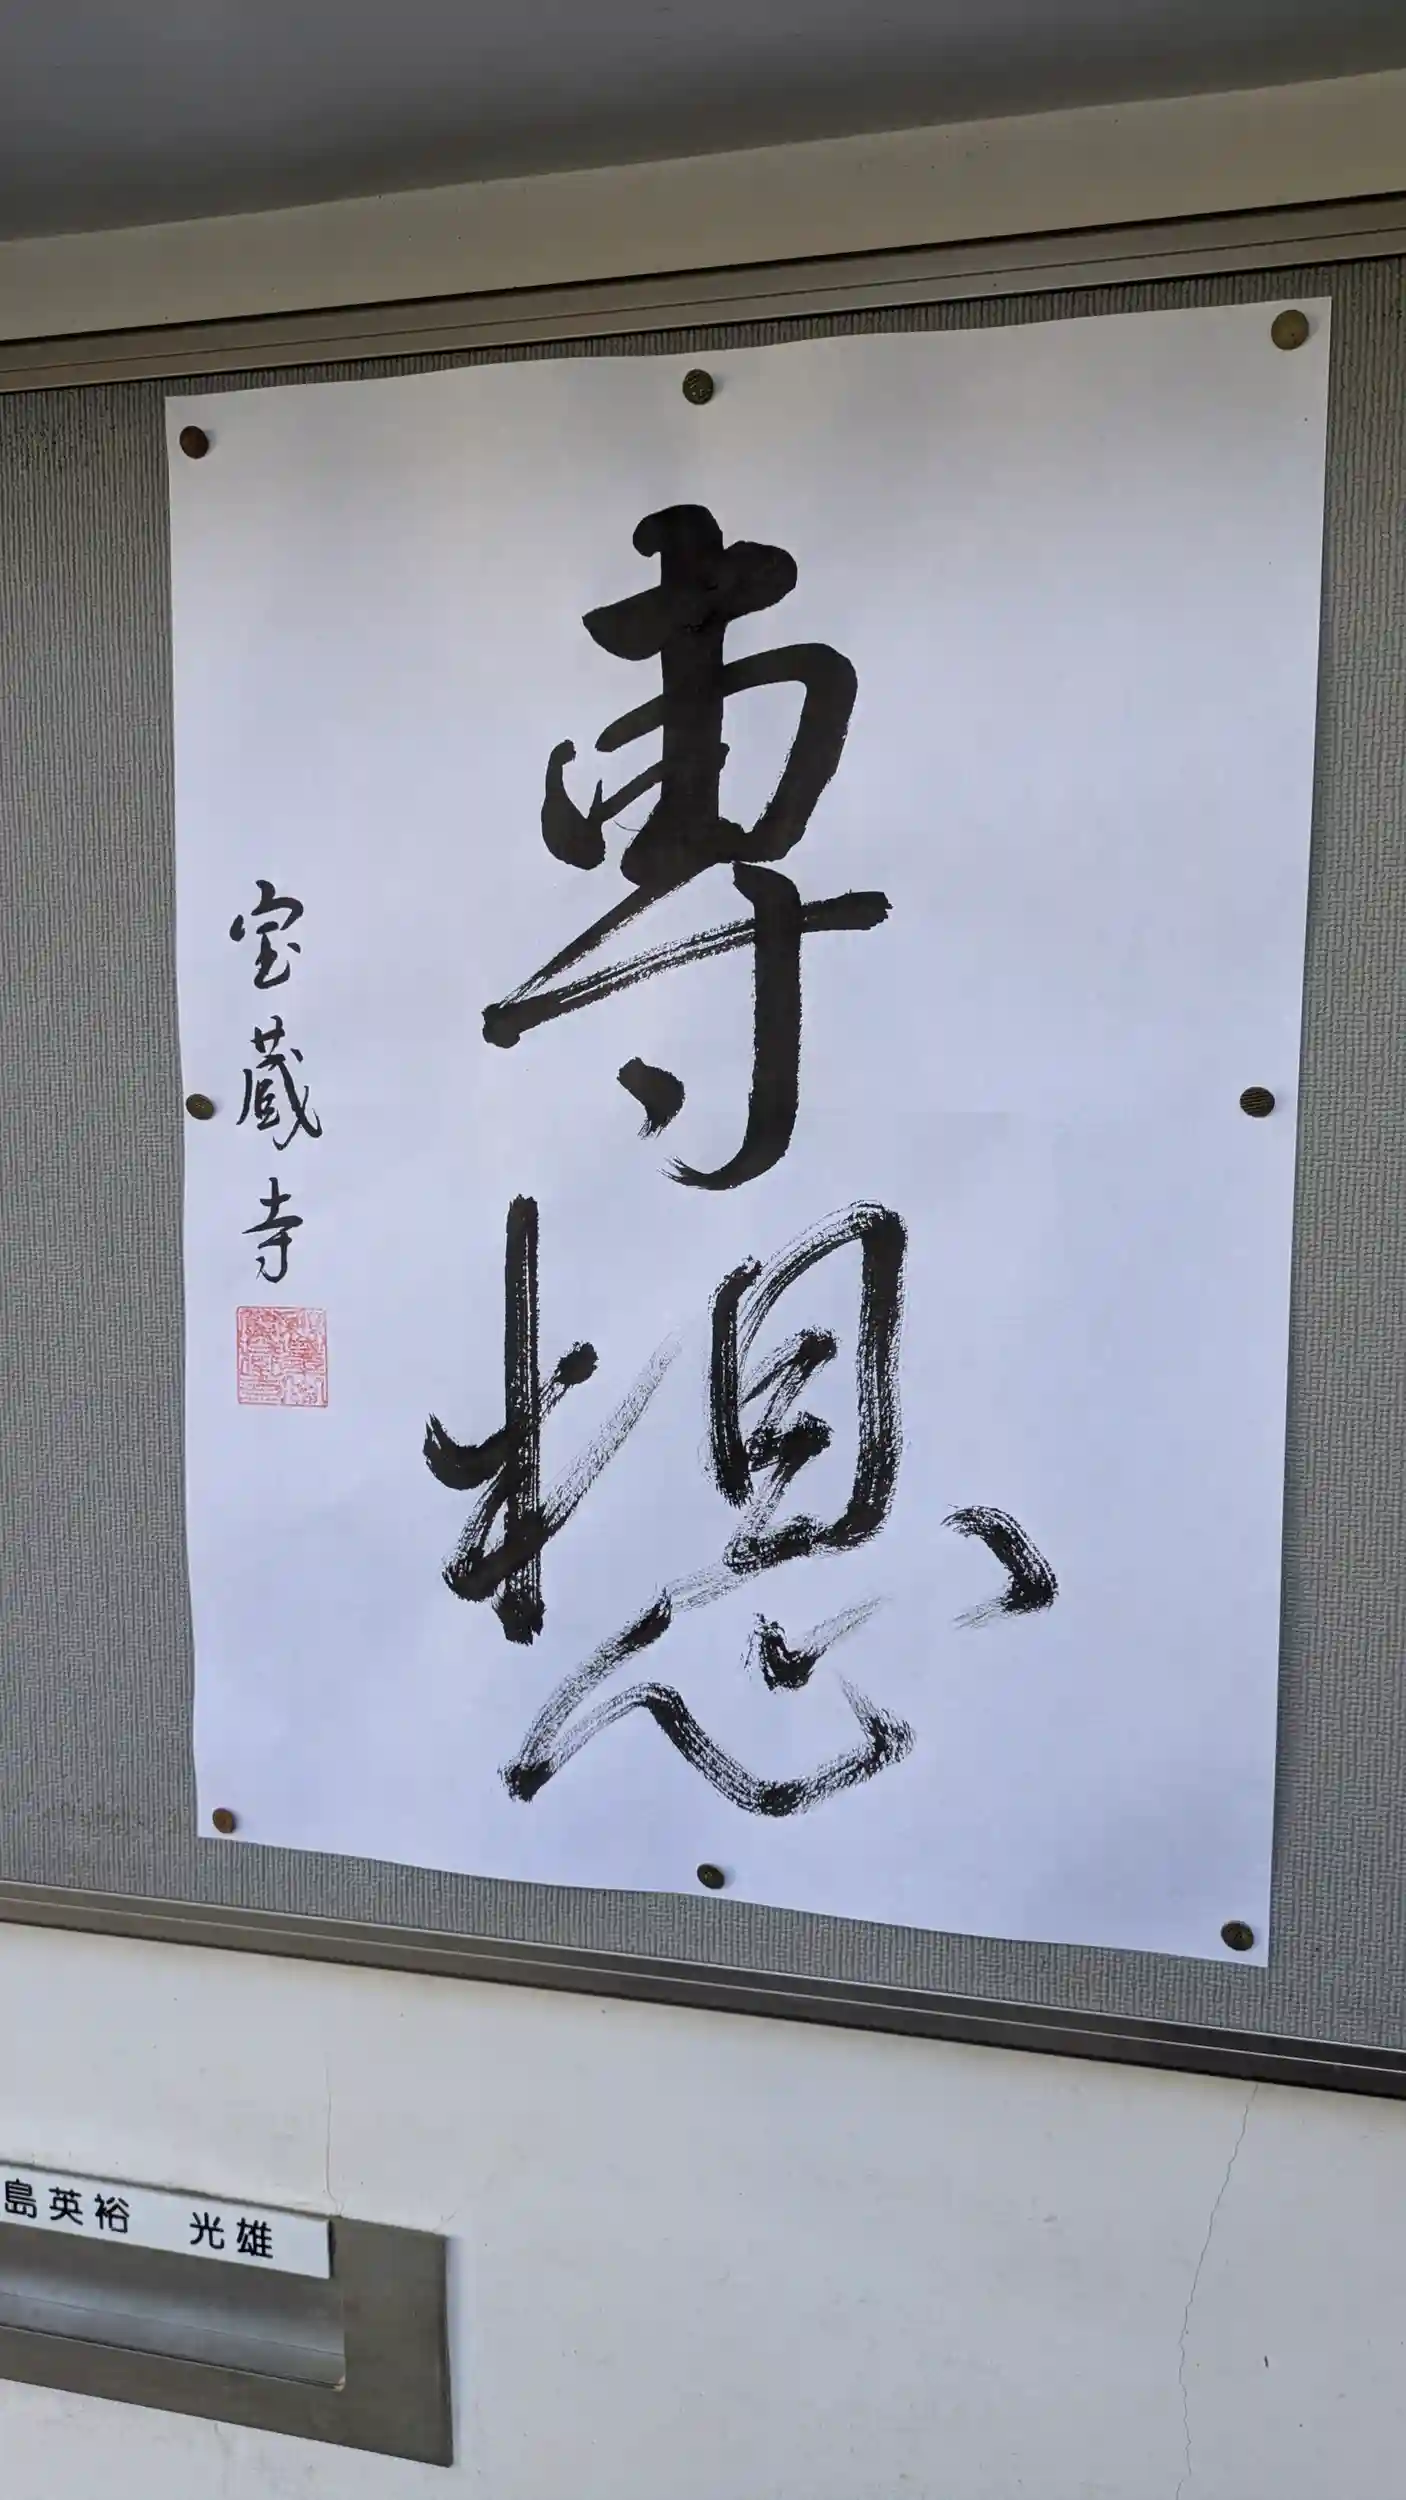 專想
宝蔵寺
島英裕 光雄